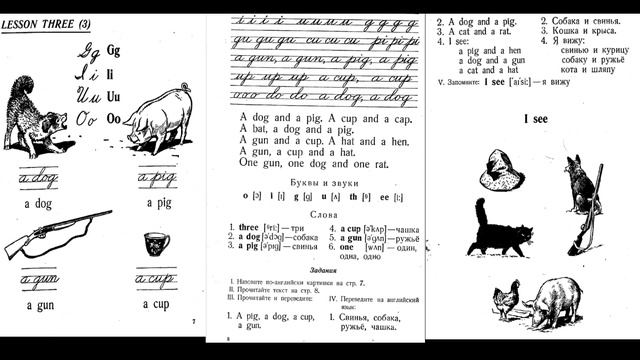 LESSON THREE (3)
Gg Gg
Ii Ii
Uu Uu
Oo Oo
a dog a pig
a dog a pig
a gun a cup
a gun a cup
7
i i i i u u u u g g g g
gu gu gu cu cu cu pi pi pi
a gun, a gun, a pig, a pig
up up up a cup, a cup
ooo do do a dog, a dog
A dog and a pig. A cup and a cap.
A bat, a dog and a pig.
A gun and a cup. A hat and a hen.
A gun, a cup and a hat.
One gun, one dog and one rat.
Буквы и звуки
o [ɔ] i [ı] g [g] u [ʌ] th [θ] ee [i:]
Слова
1. three [θri:] — три
2. a dog [ə'dɔg] — собака
3. a pig [ə'pıg] — свинья
4. a cup [ə'kʌp] — чашка
5. a gun [ə'gʌn] — ружьё
6. one [wʌn] — один,
одна, одно
Задания
I. Напишите по-английски картинки на стр. 7.
II. Прочитайте текст на стр. 8.
III. Прочитайте и переведите:
1. A pig, a dog, a cup,
a gun.
IV. Переведите на английский
язык:
1. Свинья, собака,
ружьё, чашка.
8
2. A dog and a pig.
3. A cat and a rat.
4. I see:
a pig and a hen
a dog and a gun
a cat and a hat
2. Собака и свинья.
3. Кошка и крыса.
4. Я вижу:
свинью и курицу
собаку и ружьё
кота и шляпу
V. Запомните: I see ['aı'si:] — я вижу
I see